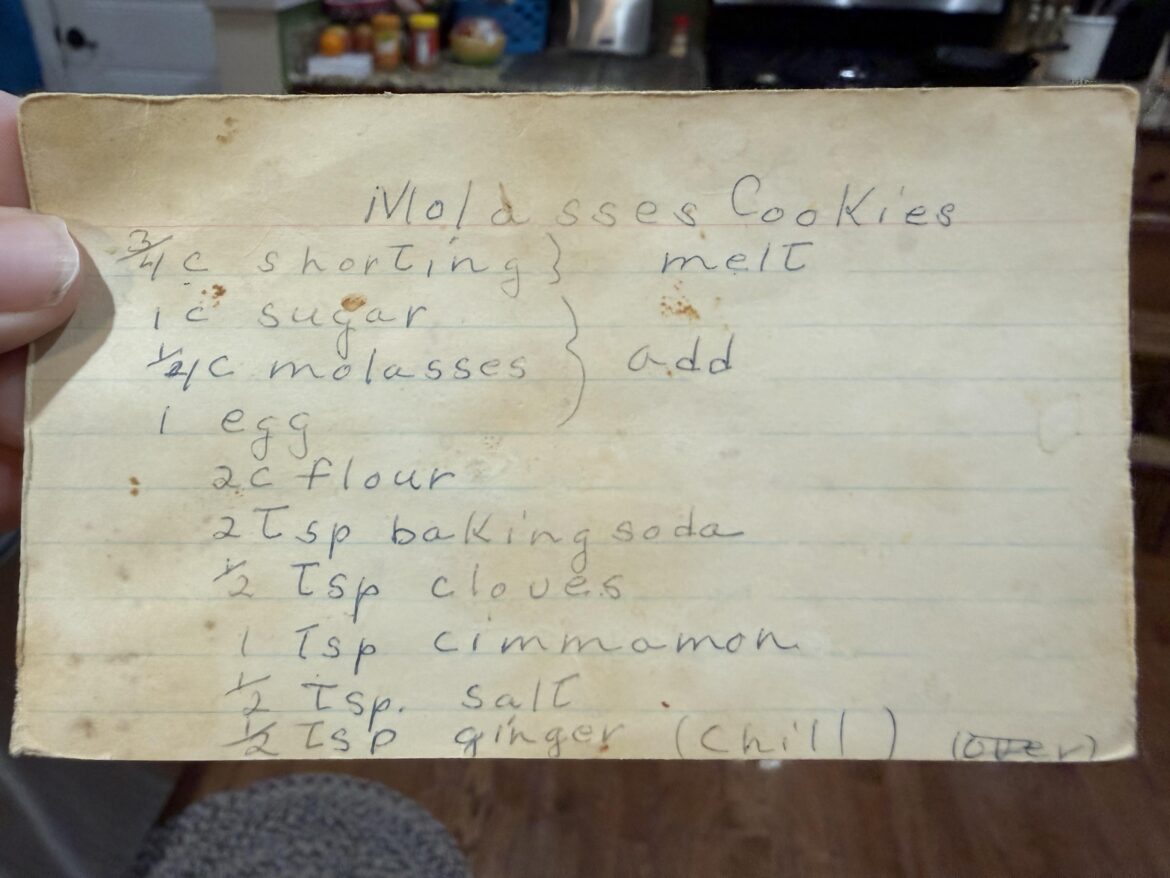 Molasses Cookies
3/4 c shorting } melt
1 c sugar
1/4 c molasses } add
1 egg
2c flour
2 Tsp baking soda
1/2 Tsp cloves
1 Tsp cimmamon
1/2 Tsp. salt
1/2 Tsp ginger (chill) (over)